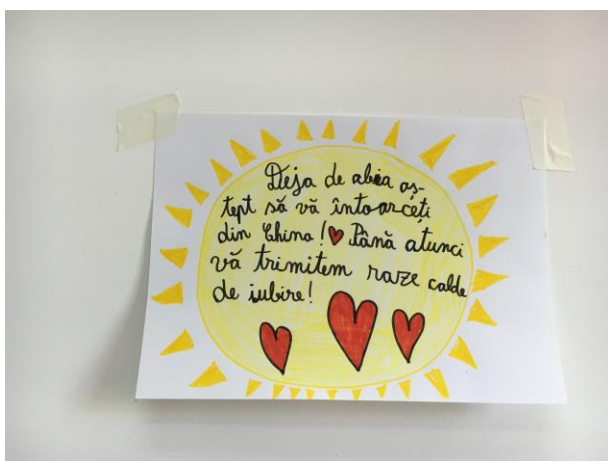 Deja de abia aș-
tept să vă întoarceți
din China! Până atunci
vă trimitem raze calde
de iubire!